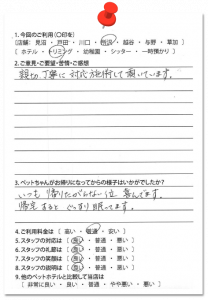 1.今回のご利用(○印を)
[店舗: 見沼 ・ 戸田 ・ 川口 ・ 所沢 ・ 越谷 ・ 与野 ・ 草加]
[ホテル ・ トリミング ・ 幼稚園 ・ シッター ・ 一時預かり]
2.ご意見・ご要望・苦情・ご感想
親切丁寧に対応施術して頂いています。
3.ペットちゃんがお帰りになってからの様子はいかがでしたか?
いつも帰りたがらない位喜んでます。
帰宅するとぐっすり眠ってます。
4.ご利用料金は [ 高い ・ 普通 ・ 安い ]
5.スタッフの対応は [ 良い ・ 普通 ・ 悪い ]
6.スタッフの礼節は [ 良い ・ 普通 ・ 悪い ]
7.スタッフの笑顔は [ 良い ・ 普通 ・ 悪い ]
8.スタッフの説明は [ 良い ・ 普通 ・ 悪い ]
9.他のペットホテルと比較して当店は
[ 非常に良い ・ 良い ・ 普通 ・ やや悪い ・ 悪い ]